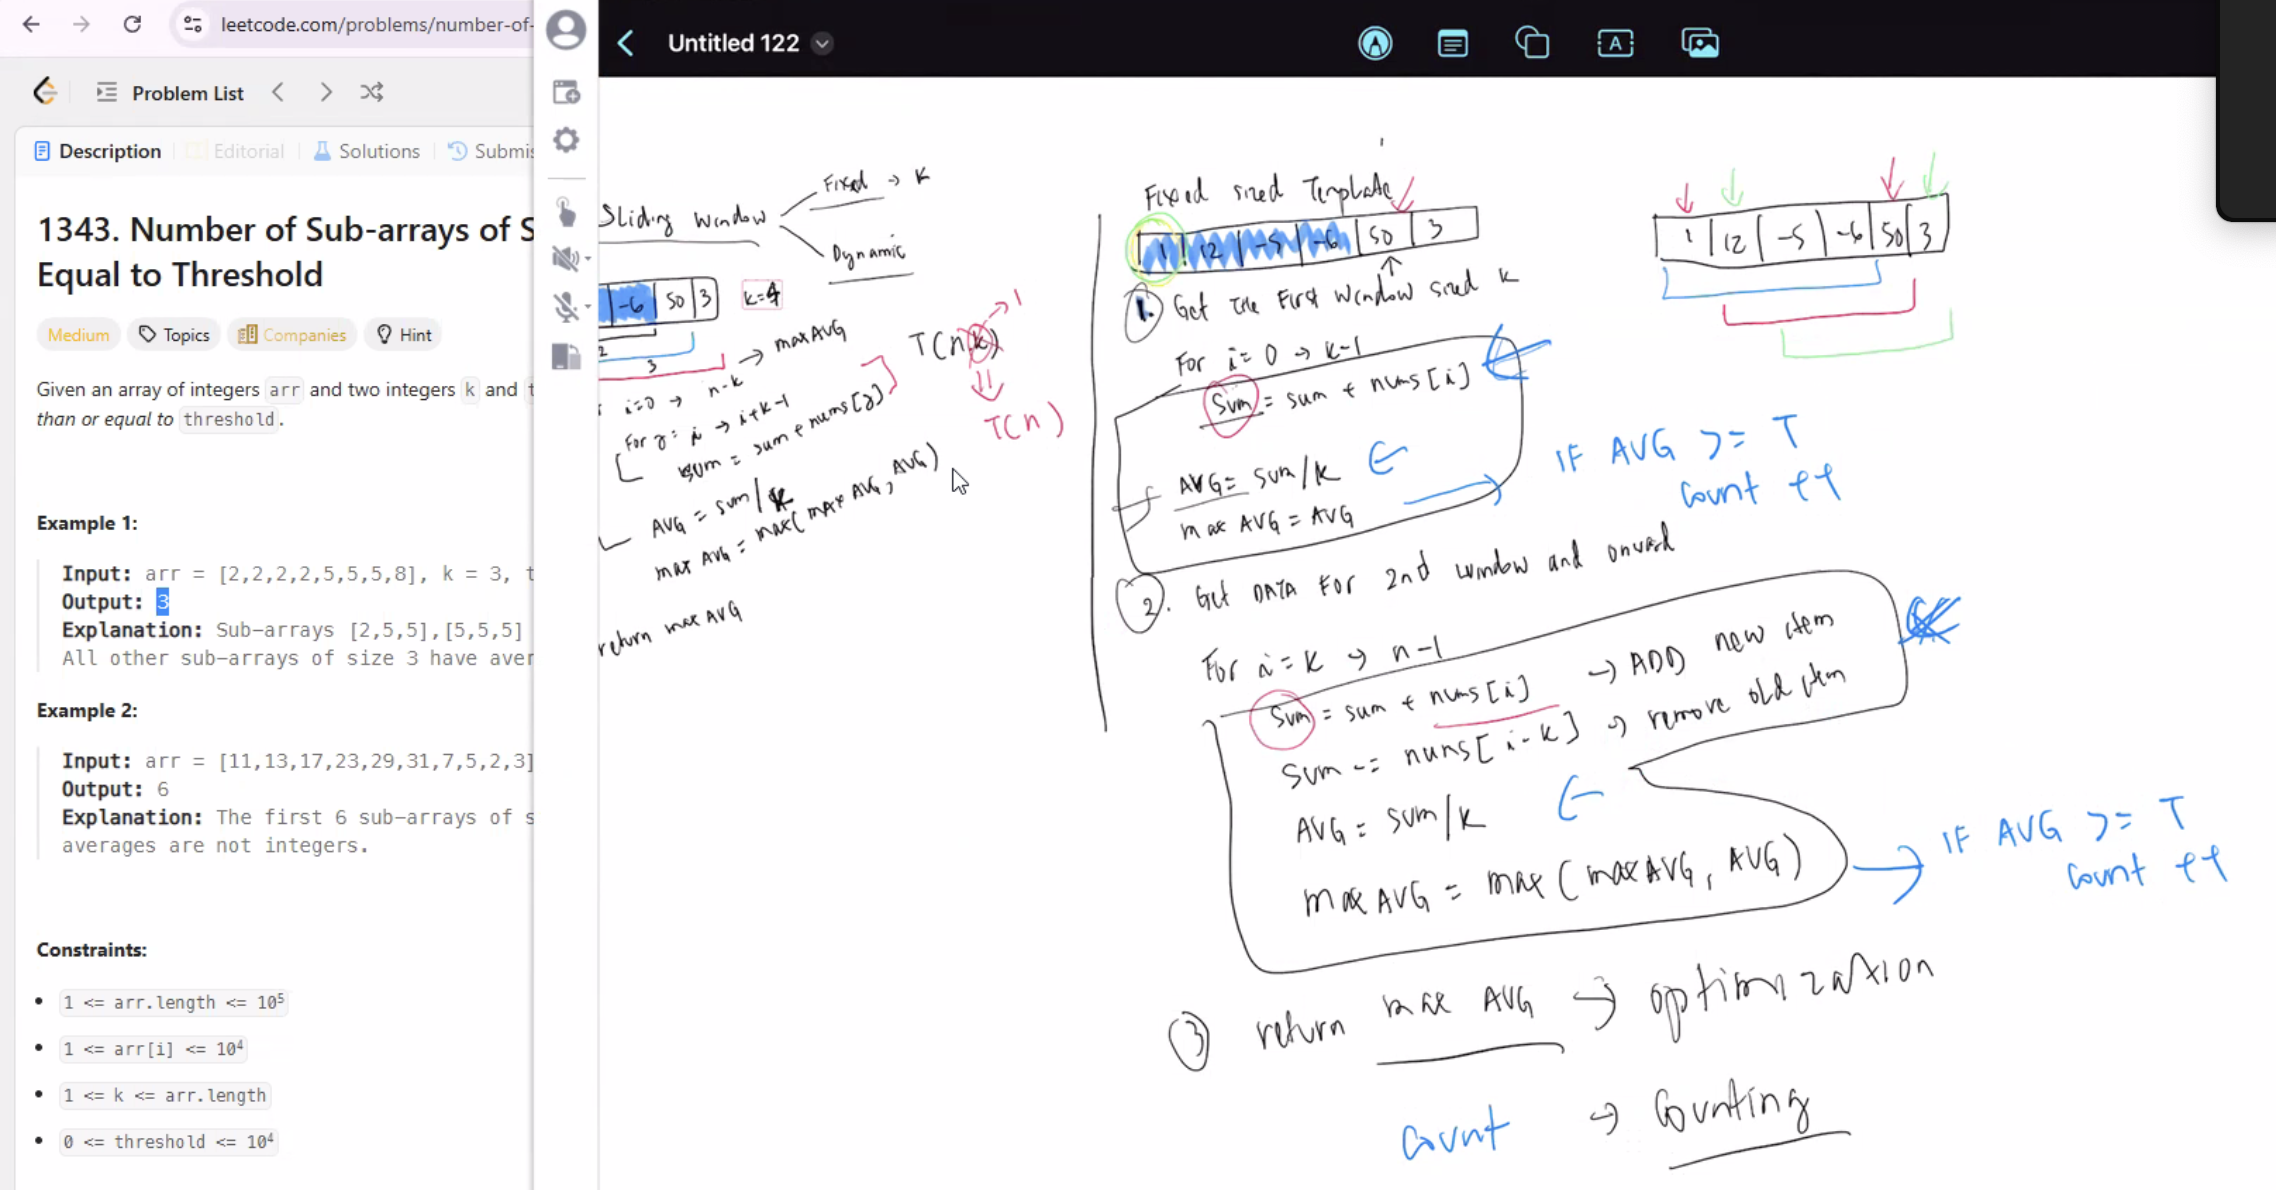 leetcode.com/problems/number-of-
Problem List
Description
Editorial
Solutions
Submis
1343. Number of Sub-arrays of S
Equal to Threshold
Medium
Topics
Companies
Hint
Given an array of integers arr and two integers k and t
than or equal to threshold.
Example 1:
Input: arr = [2,2,2,2,5,5,5,8], k = 3, t
Output: 3
Explanation: Sub-arrays [2,5,5],[5,5,5]
All other sub-arrays of size 3 have aver
Example 2:
Input: arr = [11,13,17,23,29,31,7,5,2,3]
Output: 6
Explanation: The first 6 sub-arrays of s
averages are not integers.
Constraints:
1 <= arr.length <= 10⁵
1 <= arr[i] <= 10⁴
1 <= k <= arr.length
0 <= threshold <= 10⁴
Untitled 122
Sliding Window
Fixed → K
Dynamic
-6 50 3
K=4
2
3
→ max AVG
i=0 → n-k
For j = i → i+k-1
sum = sum + nums[j]
AVG = sum/k
max AVG = max(max AVG, AVG)
return max AVG
T(n.k) → 1
T(n)
Fixed sized Template
1 12 -5 -6 50 3
1. Get the First Window sized K
For i = 0 → k-1
Sum = sum + nums[i]
AVG = sum/k
max AVG = AVG
IF AVG >= T
count ++
2. Get DATA For 2nd window and onward
For i = k → n-1
Sum = sum + nums[i] → ADD new item
Sum -= nums[i-k] → remove old item
AVG = sum/k
max AVG = max(max AVG, AVG)
IF AVG >= T
count ++
3 return max AVG → optimization
count → Counting
1 12 -5 -6 50 3